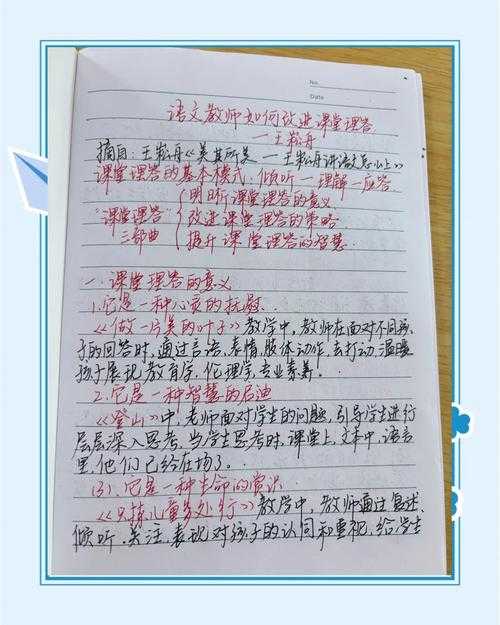 No.
Date
语文教师如何改进课堂理答
—王崧舟
摘自:王崧舟《美其所美—王崧舟讲语文怎么上》
课堂理答的基本模式:倾听—理解—应答.
明晰课堂理答的意义
"课堂理答 改进课堂理答的策略
三部曲 提升课堂理答的智慧.
一.课堂理答的意义
1.它是一种心灵的抚慰.
《做一片美的叶子》教学中,教师在面对不同孩
子的回答时,通过言语,表情,肢体动作,去打动,温暖
孩子展现教育学,伦理学,专业素养!
2.它是一种智慧的启迪
《登山》中,老师面对学生的问题,引导学生进行
层层深入思考.当学生思考时,课堂上,文本中,语言
里,他们已经在场了。
(3).它是一种生命的赏识
《只拣儿童多处行》教学中,教师通过复述、
倾听、关注,表现对孩子的认同和重视,给学生